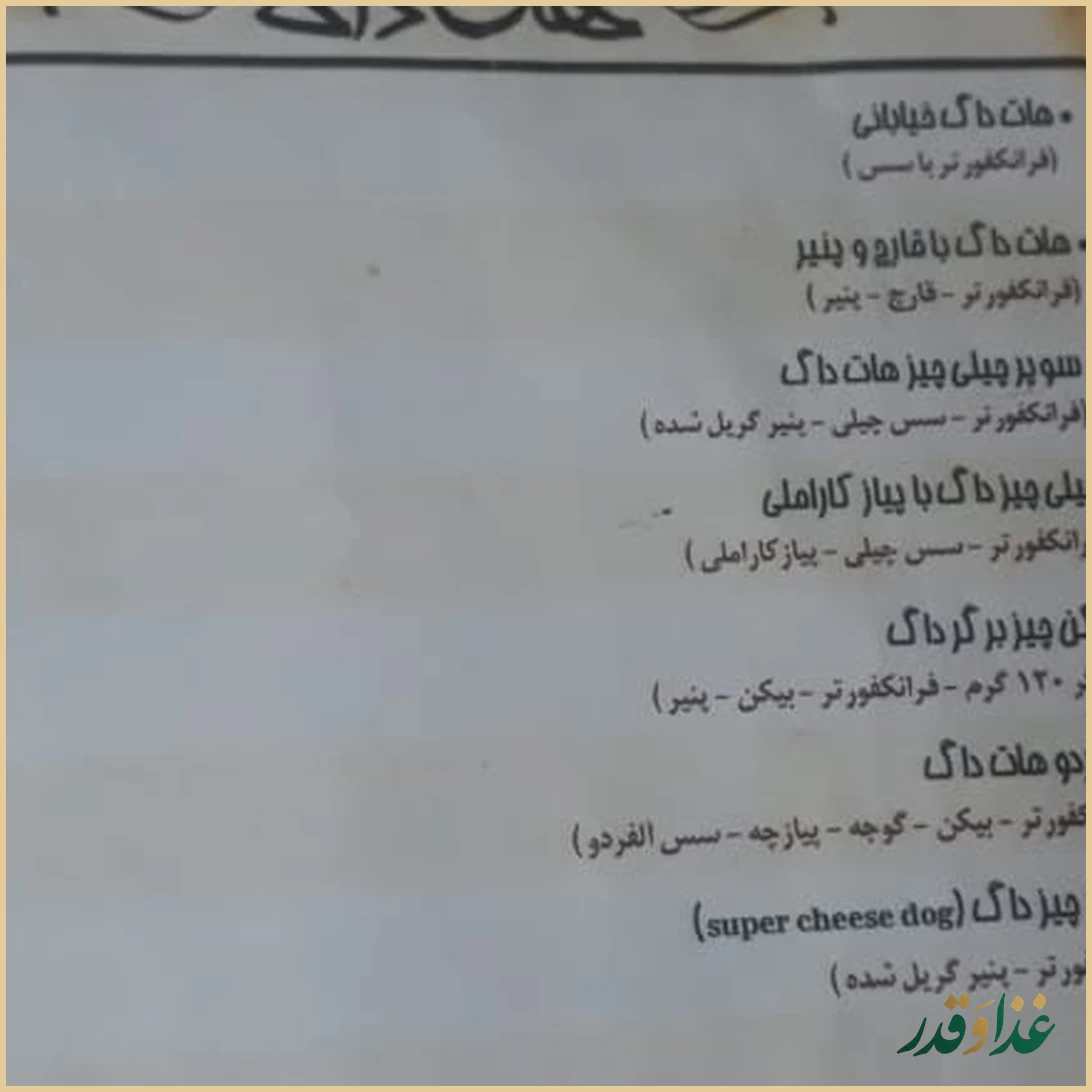 • هات داگ خیابانی
(فرانکفورتر با سس)
• هات داگ با قارچ و پنیر
(فرانکفورتر - قارچ - پنیر)
سوپر چیلی چیز هات داگ
(فرانکفورتر - سس چیلی - پنیر گریل شده)
یلی چیز داگ با پیاز کاراملی
رانکفورتر - سس چیلی - پیاز کاراملی)
کن چیز برگر داگ
ر ۱۳۰ گرم - فرانکفورتر - بیکن - پنیر)
دو هات داگ
کفورتر - بیکن - گوجه - پیازچه - سس الفردو)
چیز داگ (super cheese dog)
ورتر - پنیر گریل شده)
غذا و قدر